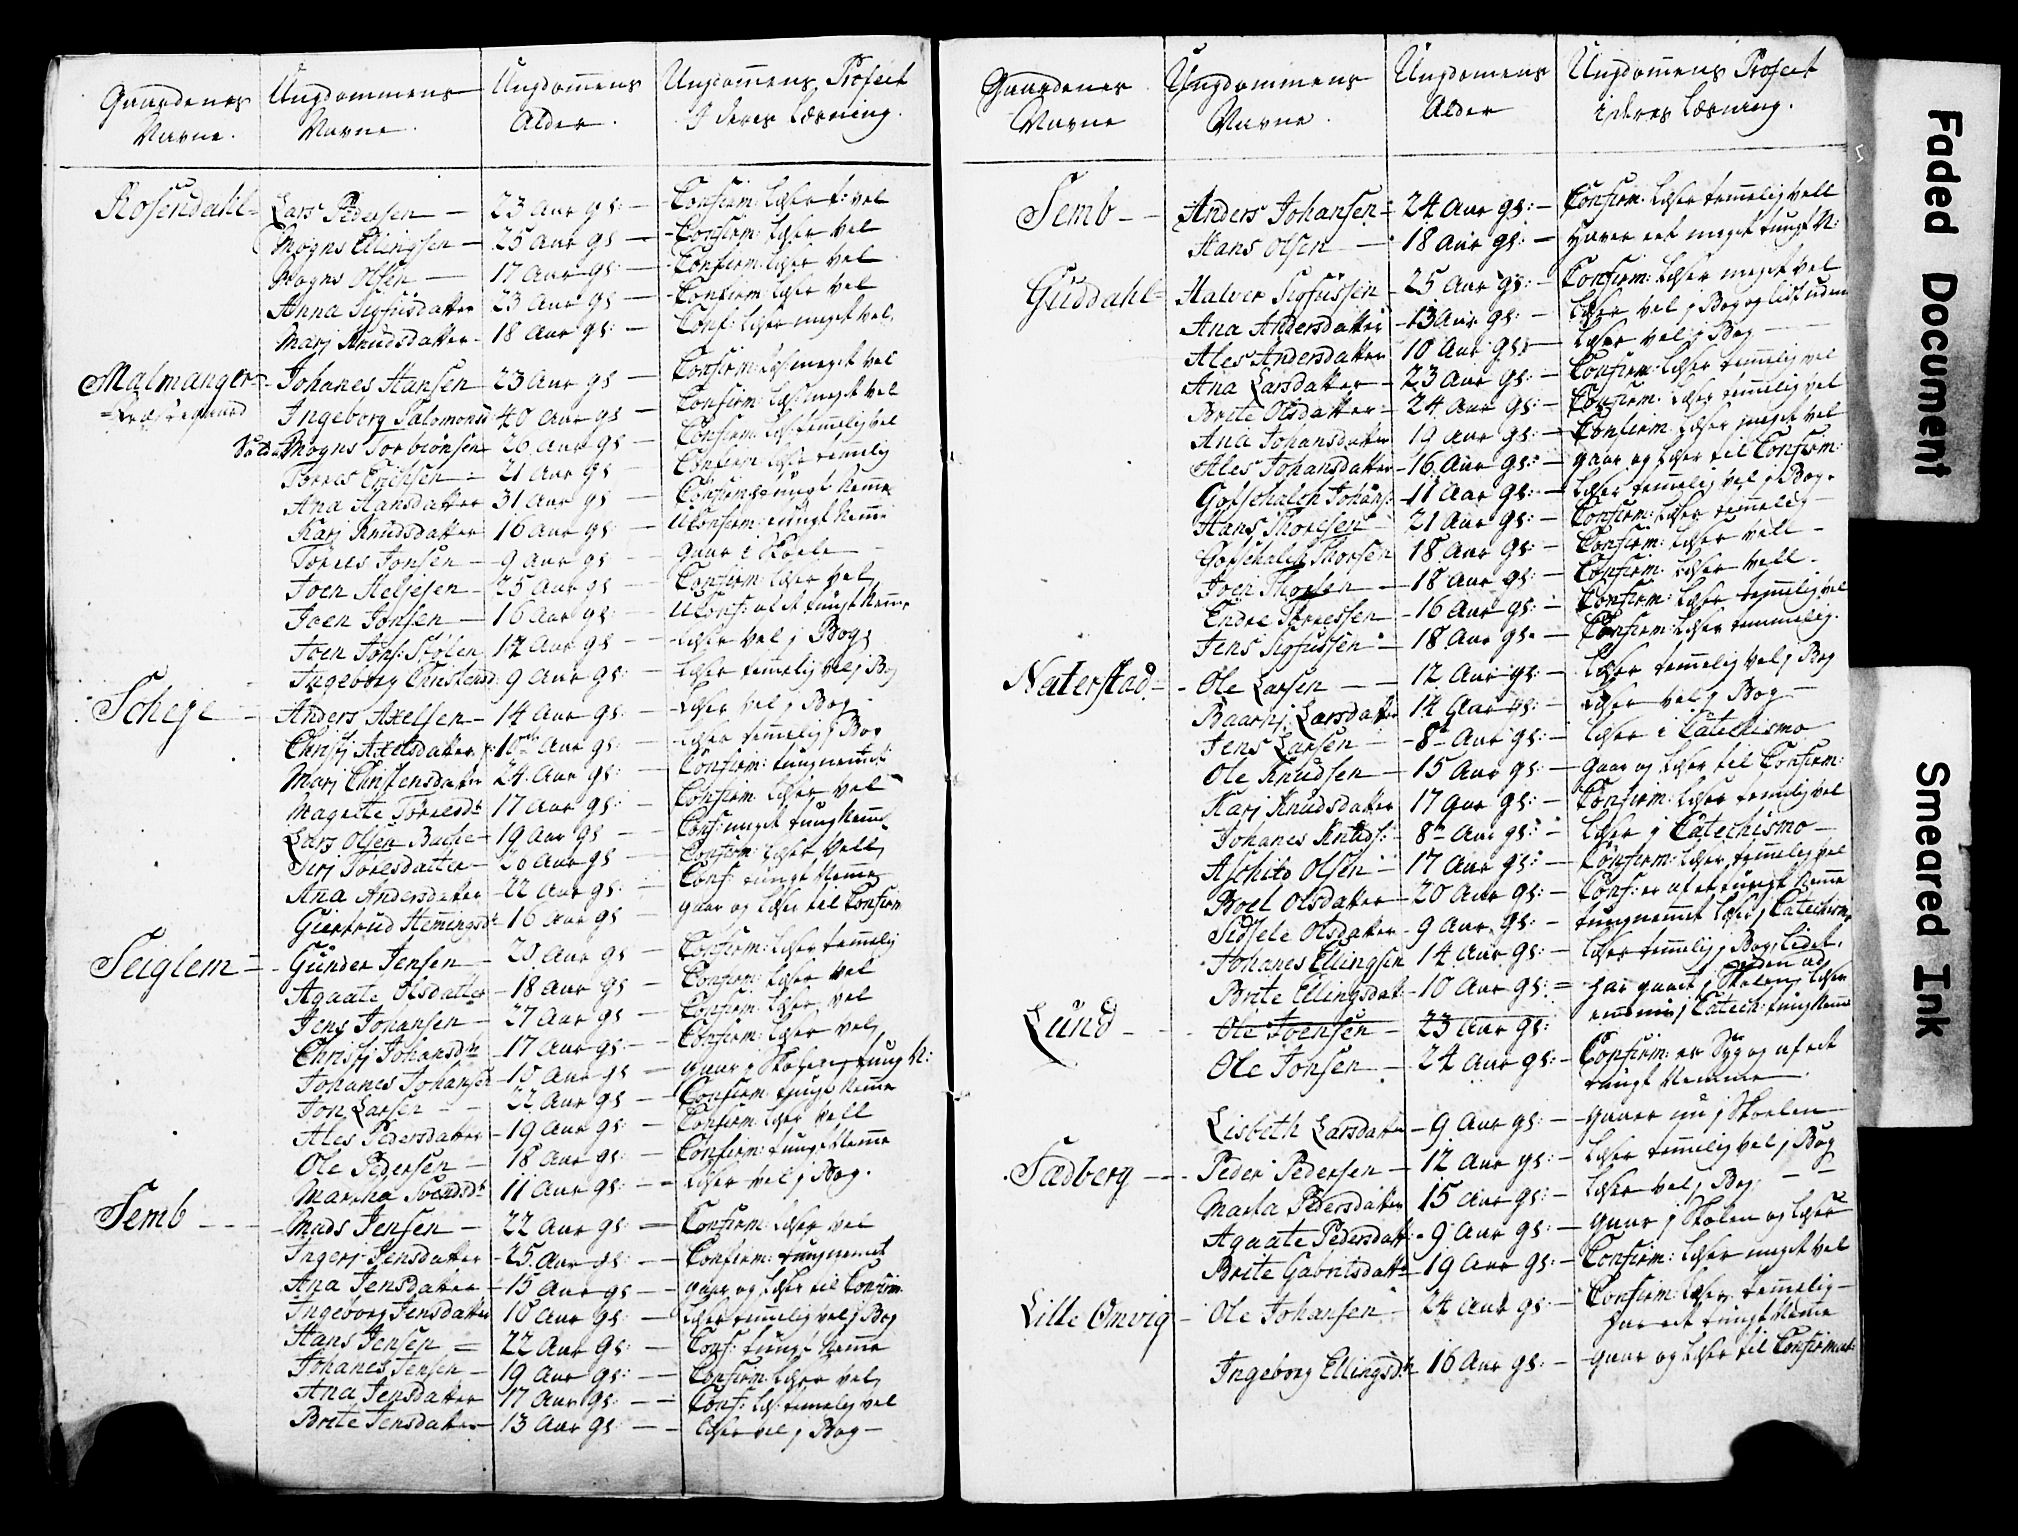 Gaardenes Navne. | Ungdommens Navne. | Ungdommens Alder. | Ungdommens Profect I deres Læsning.
Rosendahl = Lars Pedersen — 23 Aar gl: — Confirm: Læser t: vel
Mogns Ellingsen — 25 Aar gl — Confirm: Læser vel
Mogns Olsen — 17 Aar gl — Confirm: Læser vel
Anna Sigfusdatter 23 Aar gl — Confirm Læser vel
Marj Knudsdatter — 18 Aar gl: — Conf: Læser meget vel
Malmanger = Johanes Hansen — 23 Aar gl — Confirm: Læs: meget vel
Ingeborg Salomonsd 40 Aar gl — Confirm: Læs: meget vel
Mogns Torbiönsen 20 Aar gl — Confirm Læs: temmelig vel
Törres Erichsen — 21 Aar gl — Confirm Læs: temelig
Ana Hansdatter 31 Aar gl — Confirm: tungt Neme
Karj Knudsdatter 16 Aar gl: — UConfirm: tungt Neme
Törres Jonsen — 9 Aar gl — gaar i Skoele
Joen Heljesen — 25 Aar gl — Confirm: Læser vel
Joen Jonsen — 16 Aar gl: — UConf: af et tungt Neme
Joen Jons: Stölen 14 Aar gl — Læser vel j Bog
Ingeborg Christensd: 9 Aar gl: — Læser temelig vel j Bog
Schege — Anders Axelsen — 14 Aar gl: — Læser vel j Bog
Christj Axelsdatter 10 Aar gl: — Læser temelig j Bog
Marj Christensdatter 24 Aar gl: — Confirm: tungnemet
Magrete Törresdr 17 Aar gl: — Confirm: Læser vel
Lars Olsen Bache — 19 Aar gl — Conf: meget tung Neme
Sirj Töresdatter — 20 Aar gl — Confirm: Læser vell
Ana Andersdatter — 22 Aar gl: — Conf: tungt Neme
Giertrud Hemingsdr 16 Aar gl — gaar og Læser til Confirm
Seiglem — Gunder Jensen — 20 Aar gl — Confirm: Læser temelig
Agaate Olsdatter — 18 Aar gl — Confirm: Læser vel
Jens Johansen — 27 Aar gl: — Confirm: Læser vel
Christj Johansdr — 17 Aar gl: — Confirm: Læser vel
Johanes Johansen — 10 Aar gl — gaar j Skolen, tung N:
Jon Larsen — 22 Aar gl — Confirm: tungt Neme
Ales Pedersdatter — 19 Aar gl: — Confirm: Læser vell
Ole Pedersen — 18 Aar gl: — Confirm: tungt Neme
Martha Svendsdr 11 Aar gl: — Læser vel j Bog.
Semb — Mads Jensen — 22 Aar gl: — Confirm: Læser vel
Ingerj Jensdatter — 25 Aar gl: — Confirm: tungnemet
Ana Jensdatter — 15 Aar gl — gaar og Læser til Confirm
Ingeborg Jensdatter 10 Aar gl: — Læser temelig vel j Bog
Hans Jensen = 22 Aar gl: — Conf: tungt Neme
Johanes Jensen — 19 Aar gl: — Confirm: Læser vel
Ana Jensdatter 17 Aar gl: — Conf: Læs: temelig vel
Brite Jensdatter — 13 Aar gl: — Læser vel j Bog —
Gaardenes Navne | Ungdommens Navne. | Ungdomens Alder | Ungdommens Profect i deres Læsning.
Semb — Anders Johansen — 24 Aar gl: — Confirm: Læser temelig vell
Hans Olsen — 18 Aar gl: — Haver et meget tungt N:
Guddahl = Halver Sigfussen — 25 Aar gl: — Confirm: Læser meget vel
Ana Andersdatter — 13 Aar gl: — Læser vel j Bog og lidt uden
Ales Andersdatter 10 Aar gl: — Læser vel j Bog —
Ana Larsdatter — 23 Aar gl: — Confirm: Læser temelig vel
Brite Olsdatter — 24 Aar gl: — Confirm: Læser temelig vel
Ana Johansdatter 19 Aar gl: — Confirm: Læser meget vel
Ales Johansdatter — 16 Aar gl: — gaar og Læser til Confirm:
Gotschalch Johans: 11 Aar gl: — Læser temelig vel j Bog
Hans Thoresen — 21 Aar gl: — Confirm: Læser temelig
Gotschalch Thorsen 18 Aar gl: — Confirm: Læser vell —
Joen Thorsen — 18 Aar gl: — Confirm: Læser vell —
Endre Törressen — 16 Aar gl: — Confirm: Læser temelig vel
Jens Sigfussen — 18 Aar gl: — Confirm: Læser temmelig.
Naterstad — Ole Larsen — 12 Aar gl: — Læser temelig vel j Bog
Baarnj Larsdatter 14 Aar gl: — Læser vel j Bog —
Jens Larsen — 8 Aar gl: — Læser i Catechismo
Ole Knudsen — 15 Aar gl: — gaar og Læser til Confirm:
Karj Knudsdatter 17 Aar gl: — Confirm: Læser temelig vel
Johanes Knuds: — 8 Aar gl: — Læser j Catechismo —
Aschild Olsen — 17 Aar gl: — Confirm: Læser temelig vel
Boel Olsdatter — 20 Aar gl: — Conf: er af et tungt Neme
Sidsele Olsdatter — 9 Aar gl: — tungnemmet Læser j Catechismo
Johanes Ellingsen 14 Aar gl: — Læser temelig j Bog, lidet uden ad
Brite Ellingsdat: — 10 Aar gl: = har gaaet j Skolen, Læser
j Catech: tung Neme
Lund — Ole Joensen — 23 Aar gl:
Ole Jonsen — 24 Aar gl: — Confirm: er Syg og af et
tungt Nemme
Lisbeth Larsdatter — 9 Aar gl: — gaaer nu j Skoelen
Sædberg — Peder Pedersen — 12 Aar gl: — Læser temelig vel j Bog
Marta Pedersdatter 15 Aar gl: — Læser vel j Bog —
Agaate Pedersdatt: — 9 Aar gl: — gaar j Skolen og Læser
Brite Gabrilsdatter 19 Aar gl: — Confirm: Læser meget vel
Lille Omvig — Ole Johansen — 24 Aar gl: — Confirm: Læser temelig —
har et tungt Neme
Ingeborg Ellingsdr 16 Aar gl: — gaar og Læser til Confirmat:
Faded Document
Smeared Ink